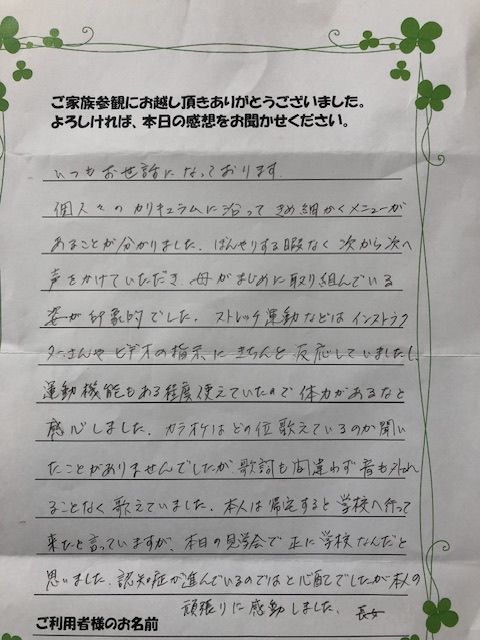 ご家族参観にお越し頂きありがとうございました。
よろしければ、本日の感想をお聞かせください。
いつもお世話になっております。
個人々のカリキュラムに沿ってきめ細かくメニューが
あることが分かりました。ぼんやりする暇なく次から次へ
声をかけていただき、母がまじめに取り組んでいる
姿が印象的でした。ストレッチ運動などはインストラク
ターさんやビデオの指示にきちんと反応していましたし、
運動機能もある程度使えていたので体力があるなと
感心しました。カラオケはどの位歌えているのか聞い
たことがありませんでしたが歌詞も間違わず音も外れ
ることなく歌えていました。本人は帰宅すると学校へ行って
来たと言っていますが、本日の見学会で正に学校なんだと
思いました。認知症が進んでいるのではと心配でしたが本人の
頑張りに感動しました。 長女
ご利用者様のお名前